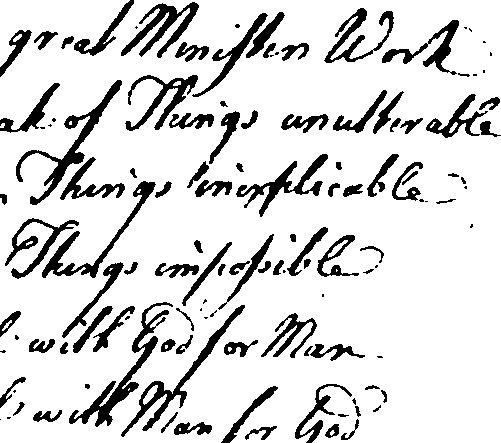 great Ministers Work
ak of Things unutterable
Things inexplicable
Things impossible
with God for Man
with Man for God